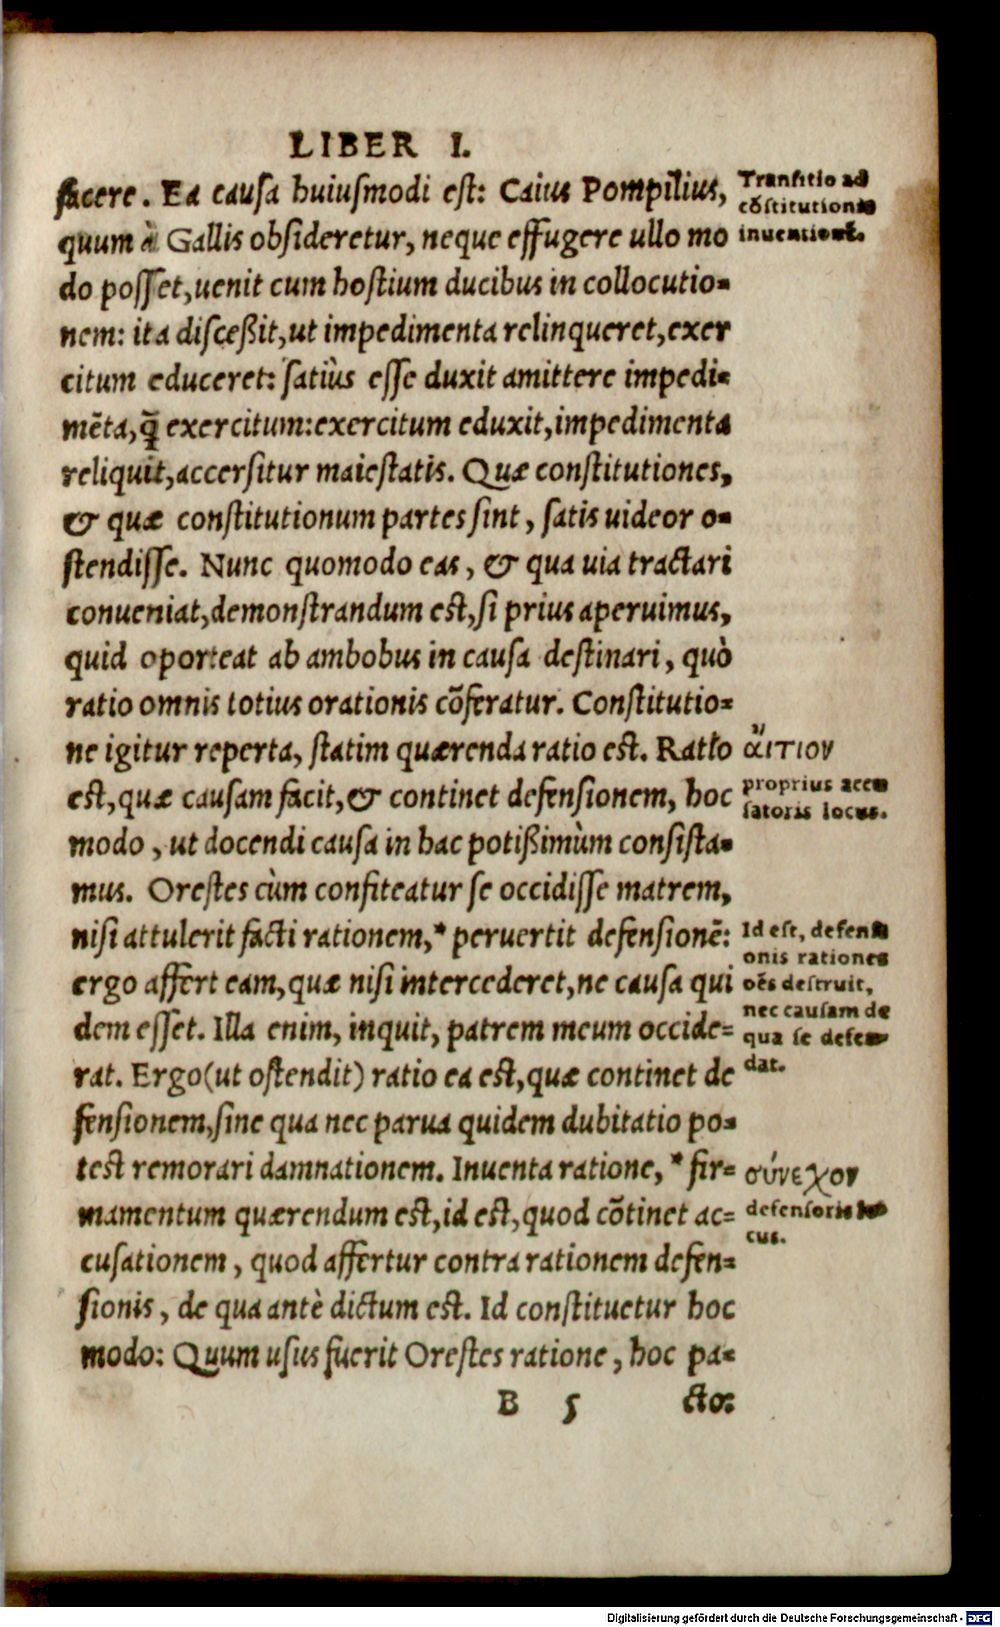 LIBER I.
facere. Ea causa huiusmodi est: Caius Pompilius,
quum à Gallis obsideretur, neque effugere ullo mo
do posset, uenit cum hostium ducibus in collocutio-
nem: ita disceßit, ut impedimenta relinqueret, exer
citum educeret: satiùs esse duxit amittere impedi-
mēta, q̄ exercitum: exercitum eduxit, impedimenta
reliquit, accersitur maiestatis. Quæ constitutiones,
& quæ constitutionum partes sint, satis uideor o-
stendisse. Nunc quomodo eas, & qua uia tractari
conueniat, demonstrandum est, si prius aperuimus,
quid oporteat ab ambobus in causa destinari, quò
ratio omnis totius orationis cōferatur. Constitutio-
ne igitur reperta, statim quærenda ratio est. Ratio
est, quæ causam facit, & continet defensionem, hoc
modo, ut docendi causa in hac potißimùm consista-
mus. Orestes cùm confiteatur se occidisse matrem,
nisi attulerit facti rationem,* peruertit defensionē:
ergo affert eam, quæ nisi intercederet, ne causa qui
dem esset. Illa enim, inquit, patrem meum occide-
rat. Ergo (ut ostendit) ratio ea est, quæ continet de
fensionem, sine qua nec parua quidem dubitatio po-
test remorari damnationem. Inuenta ratione, * fir-
mamentum quærendum est, id est, quod cōtinet ac-
cusationem, quod affertur contra rationem defen-
sionis, de qua antè dictum est. Id constituetur hoc
modo: Quum usus fuerit Orestes ratione, hoc pa-
B 5 cto:
Transitio ad
cōstitutionis
inuentionē.
αἴτιον
proprius accu
satoris locus.
Id est, defensi
onis rationes
oēs destruit,
nec causam de
qua se defen
dat.
σύνεχον
defensoris lo
cus.
Digitalisierung gefördert durch die Deutsche Forschungsgemeinschaft - DFG